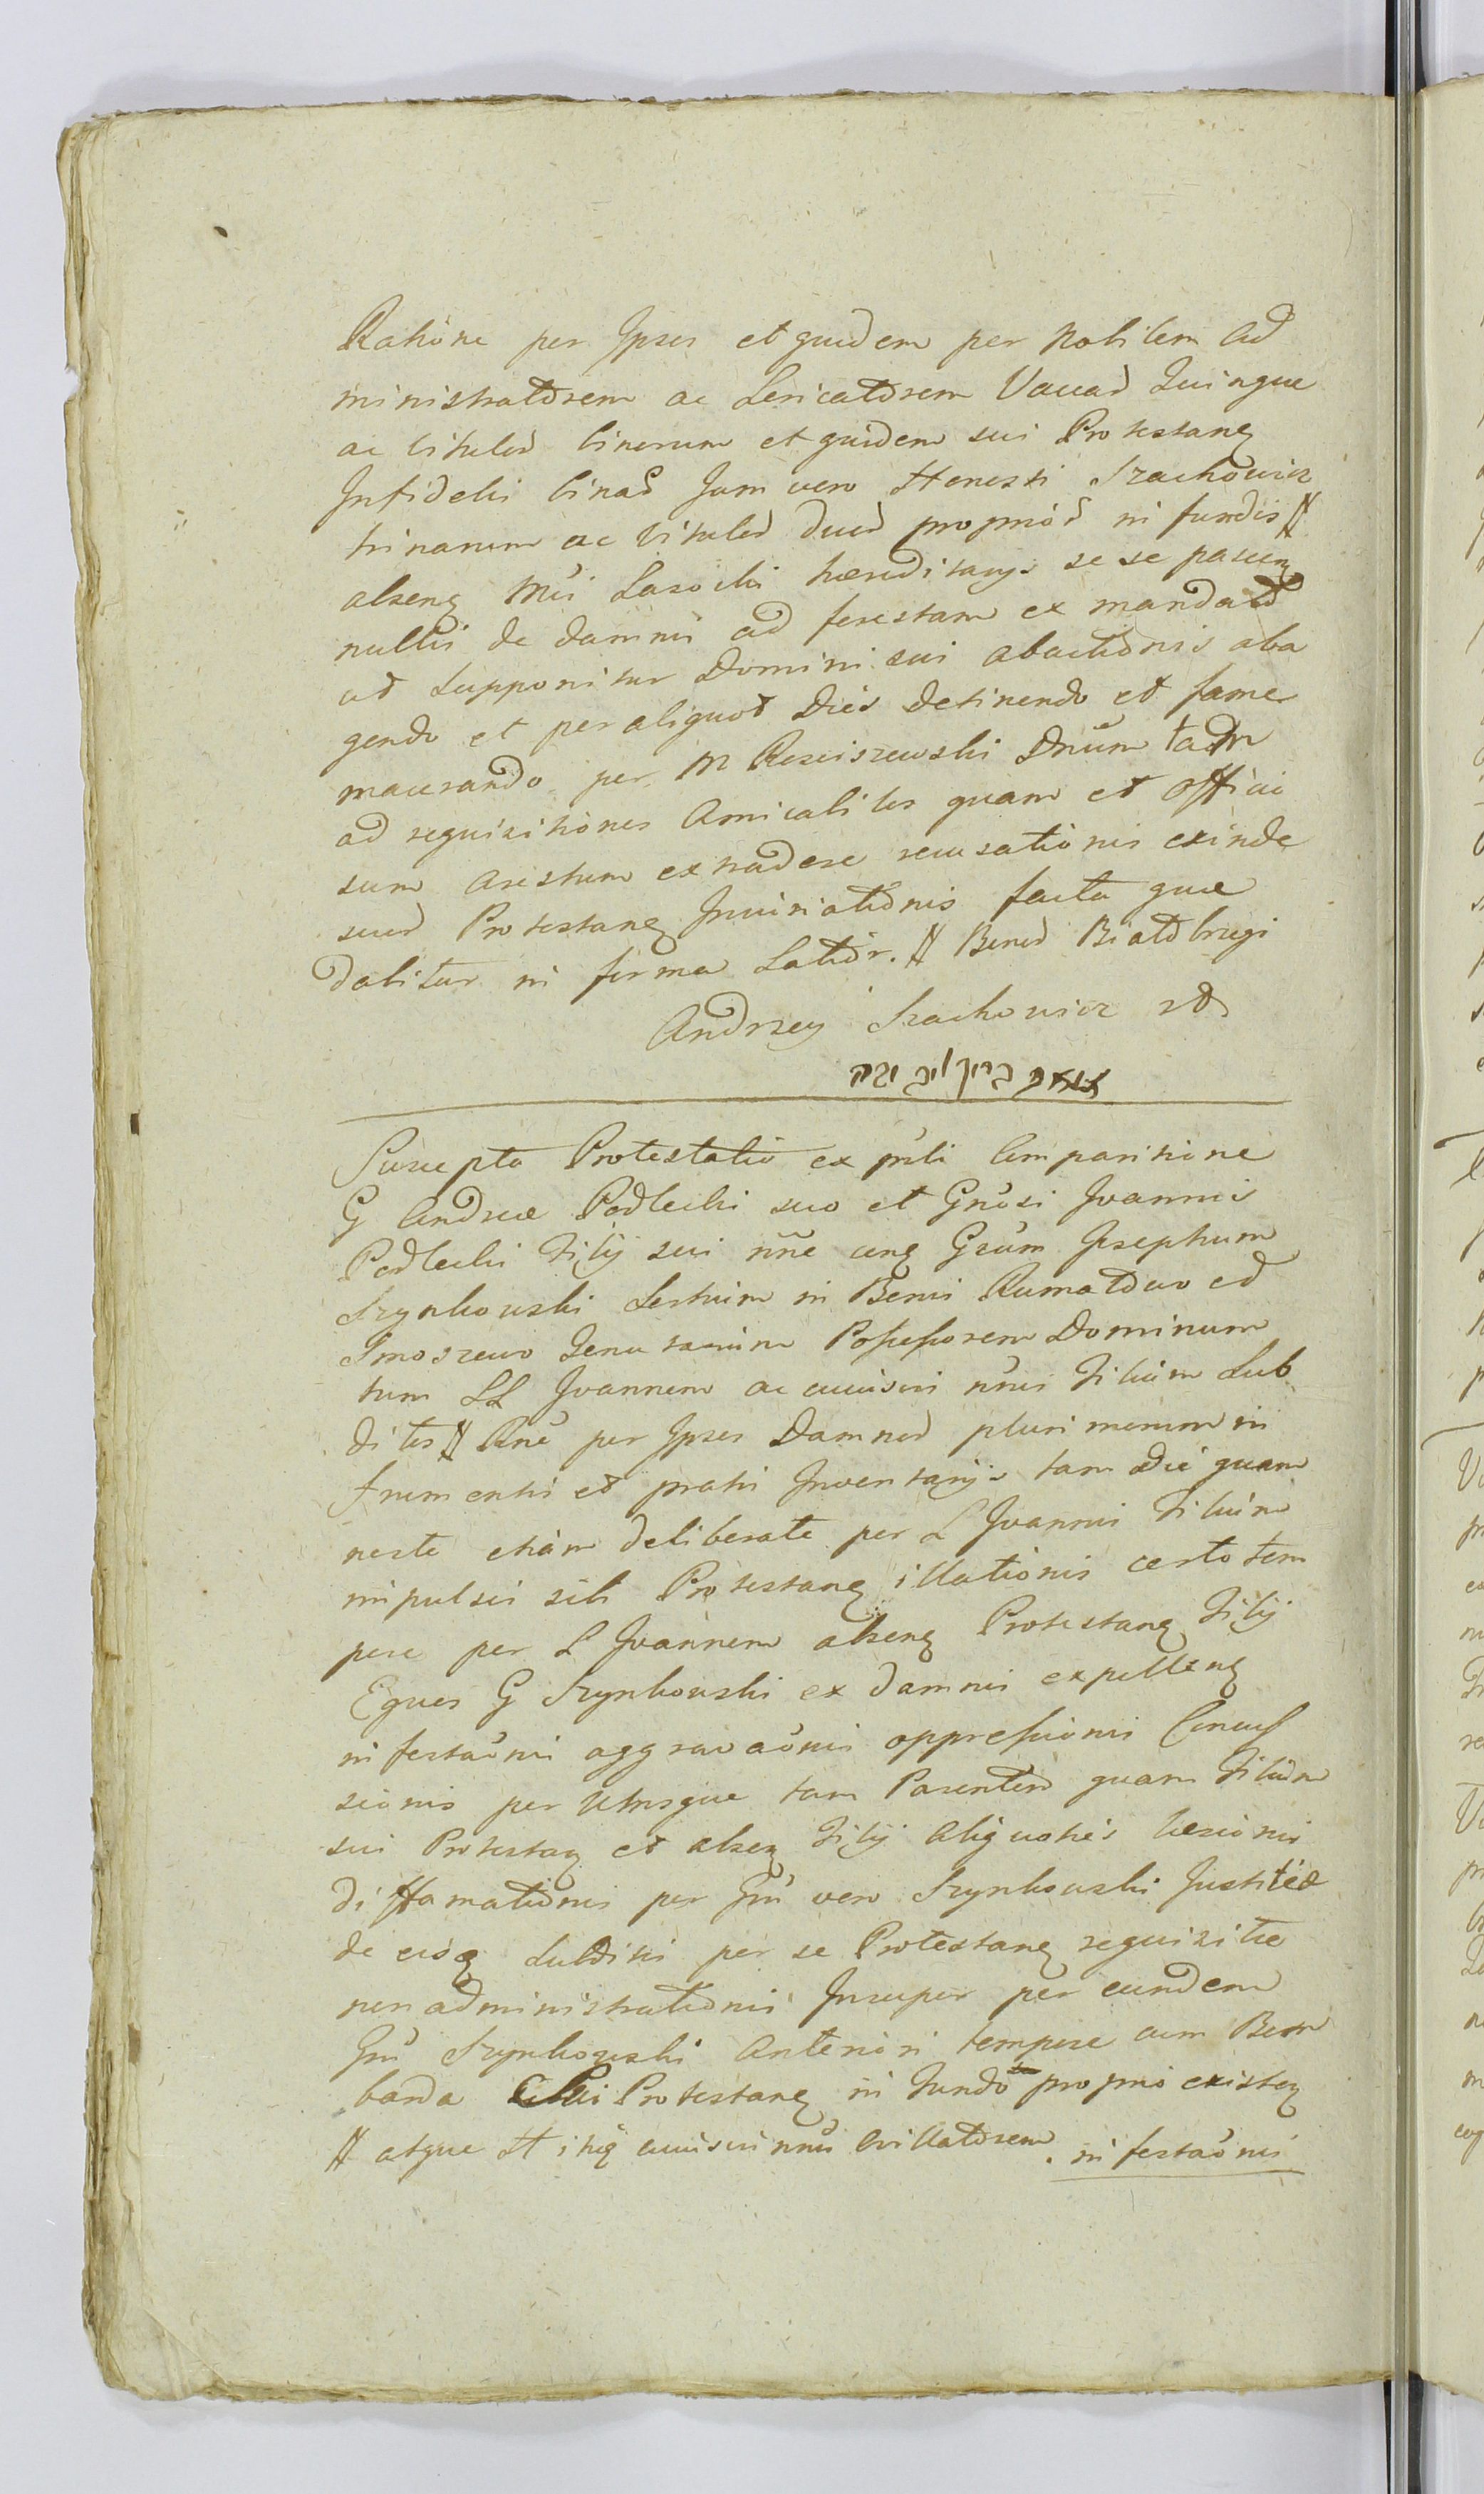 Rationè per Ipsos et quidem per Nobilem Ad
ministratorem ac Vaccas Quinque
ac Vitulos binorum et quidem sui Protestanq
Infidelis binas Jam vero Honesti Szachowicz
trinarum ac Vitulos duos proprios in fundis #
absenq Mci Lasocki hæreditarys se se pascenq
nullis de damnis ad forestam ex mandato
ut supponitur Domini sui abactionis aba
gendo et per aliquot Dies detinendo et fame
macerando per M Rosciszewski Dnum tam
ad requisitiones Amicabiles quam et officio
sum Arestum extradere recusationis exinde
suas Protestanq Injuriationis facta quæ
dabitur in forma Latior. #
Andrzey Szachowicz
Suscepta Protestatio ex prsti Comparitione
G Andreæ Podlecki suo et Gnosi Joannis
Podlecki Filij sui nne conq Gsum Josephum
Szynkowski in Bonis et
Possessorem Dominum
tum LL Joannem ac cuiusvi nnis Filium Sub
ditos # Rne per Ipsos Damnos plurimorum in
frumentis et pratis Inventarijs tam Die quam
nocte etiam deliberate per L Joannis Filium
impulsis sibi Protestanq illationis certo tem
pore per L Joannem absenq Protestanq Filij
Equos G Szynkowski ex damnis expellenq
infestaonis aggravaonis oppressionis Concus
sionis per Utrosque tam Parentem quam Filium
sui Protestaq et absenq Filij Aliquoties læsionis
diffamationis per Gsu vero Szynkowski Justitiæ
de eisq Subditis per se Protestanq requisitæ
non administrationis Insuper per eundem
Gsu Szynkowski Anteriori tempore cum Bom
barda Protestanq in Fundo proprio existenq
# atque cuiusvis nnis Avillatorem. infestaonis